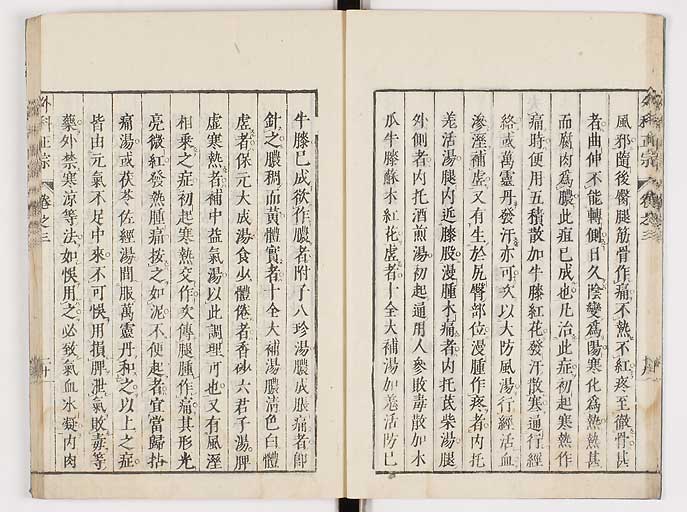 風邪隨後臀腿筋骨作痛不熱不紅疼至徹骨甚
者曲伸不能轉側日久陰變為陽寒化為熱熱甚
而腐肉為膿此疽已成也凡治此症初起寒熱作
痛時便用五積散加牛膝紅花發汗散寒通行經
絡或萬靈丹發汗亦可次以大防風湯行經活血
滲溼補虛又有生於尻臀部位漫腫作疼者內托
羌活湯腿內近膝股漫腫木痛者內托芪柴湯腿
外側者內托酒煎湯初起通用人參敗毒散加木
瓜牛膝蘇木紅花虛者十全大補湯加羗活防已
牛膝已成欲作膿者附子八珍湯膿成脹痛者即
針之膿稠而黃體實者十全大補湯膿清色白體
虛者保元大成湯食少體倦者香砂六君子湯脾
虛寒熱者補中益氣湯以此調理可也又有風溼
相乘之症初起寒熱交作次傳腿腫作痛其形光
亮微紅發熱腫痛按之如泥不便起者宜當歸拈
痛湯或茯苓佐經湯間服萬靈丹和之以上之症
皆由元氣不足中來不可悞用損脾泄氣敗毒等
藥外禁寒涼等法如悞用之必致氣血冰凝內肉
外科正宗
卷之三